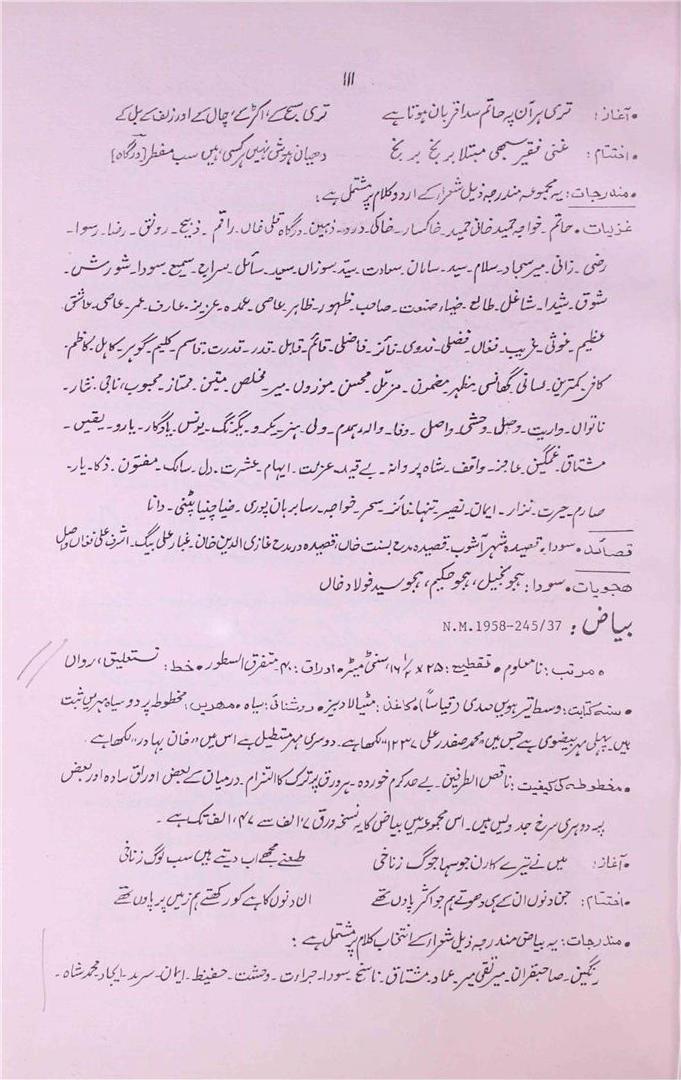 ۱۱۱
• آغاز: تری ہر آن پہ حاتم سدا قربان ہوتا ہے تری سج کے، اکڑ کے، چال کے اور زلف کے بل کے
• اختتام: غنی فقیر سبھی مبتلا برنج برنج دھیان ہوش نہیں ہر کسی، ہیں سب مفطر [درگاہ]
• مندرجات: یہ مجموعہ مندرجہ ذیل شعراء کے اردو کلام پر مشتمل ہے:
غزلیات • حاتم۔ خواجہ حمید خانی حمید۔ خاکسار۔ خاکی۔ درد۔ ذہین۔ درگاہ قلی خاں۔ راقم۔ ذبیح۔ رونق۔ رضا۔ رسوا۔
رضی۔ زانی۔ میر سجاد۔ سلام۔ سید۔ سامان۔ سعادت۔ سید سوزاں۔ سعید۔ سائل۔ سراج۔ سمیع۔ سودا۔ شورش۔
شوق۔ شیدا۔ شاغل۔ طالع۔ ضیاء۔ صنعت۔ صاحب۔ ظہور۔ ظاہر۔ عاصی۔ عمدہ۔ عزیز۔ عارف۔ عمر۔ عاصی۔ عاشق
عظیم۔ غوثی۔ غریب۔ فغاں۔ فضلی۔ فدوی۔ فائز۔ فاضلی۔ قائم۔ قابل۔ قدر۔ قدرت۔ قاسم۔ کلیم۔ گوہر۔ کامل۔ کاظم۔
کافر۔ کمترین۔ لسانی۔ گھانسی۔ مظہر۔ مضمون۔ مزمل۔ محسن۔ موزوں۔ میر۔ مخلص۔ متین۔ ممتاز۔ محبوب۔ ناجی۔ نثار۔
ناتواں۔ واریت۔ وصل۔ وحشی۔ واصل۔ وفا۔ والہ۔ ہمدم۔ ولی۔ ہنر۔ یکرو۔ یکرنگ۔ یونس۔ یادگار۔ یارو۔ یقیں۔
مشتاق۔ غمگین۔ عاجز۔ واقف۔ شاہ پروانہ۔ بے قید۔ عزلت۔ ایہام۔ عشرت۔ دل۔ سانک۔ مفتون۔ ذکا۔ یار۔
صارم۔ حیرت۔ نزار۔ ایمان۔ نصیر۔ تنہا۔ فائز۔ سحر۔ خواجہ۔ رسا برہان پوری۔ ضیا چنیا پٹنی۔ دانا
قصائد • سودا، قصیدہ شہر آشوب۔ قصیدہ مدح بسنت خاں، قصیدہ در مدح غازی الدین خان۔ غبار علی بیگ۔ اشرف علی فغاں۔ واصل
ہجویات • سودا: ہجو بخیل، ہجو حکیم، ہجو سید فولاد خاں
بیاض: N.M.1958-245/37
• مرتب: نامعلوم • تقطیع: ۲۵ × ۱۶ ۱/۲ سنٹی میٹر • اوراق: ۴۰۔ متفرق السطور • خط: نستعلیق، رواں
• سنہ کتابت: وسط تیرہویں صدی (قیاساً) • کاغذ: مٹیالا دبیز • روشنائی: سیاہ • مہریں: مخطوطہ پر دو سیاہ مہریں ثبت
ہیں۔ پہلی مہر بیضوی ہے جس میں "محمد صفدر علی ۱۲۳۷" لکھا ہے۔ دوسری مہر مستطیل ہے اس میں "خان بہادر" لکھا ہے۔
• مخطوطہ کی کیفیت: ناقص الطرفین، بے حد کرم خوردہ۔ ہر ورق پر ترک کا التزام۔ درمیان کے بعض اوراق سادہ اور بعض
پر دوہری سرخ جدولیں ہیں۔ اس مجموعہ میں بیاض کا یہ نسخہ ورق ۷ الف سے ۴۷، الف تک ہے۔
• آغاز: میں نے تیرے کارن جو سہا جوگ زناخی طعنے مجھے اب دیتے ہیں سب لوگ زناخی
• اختتام: جن دنوں ان کے ہی دھوتے ہم جو اکثر پاؤں تھے ان دنوں کاہے کو رکھتے ہم زمیں پر پاؤں تھے
• مندرجات: یہ بیاض مندرجہ ذیل شعراء کے انتخاب کلام پر مشتمل ہے:
رنگین۔ صاحبقران۔ میر تقی میر۔ عماد۔ مشتاق۔ ناسخ۔ سودا۔ جراءت۔ وحشت۔ حفیظ۔ ایمان۔ سرمد۔ ایجاد۔ محمد شاہ۔